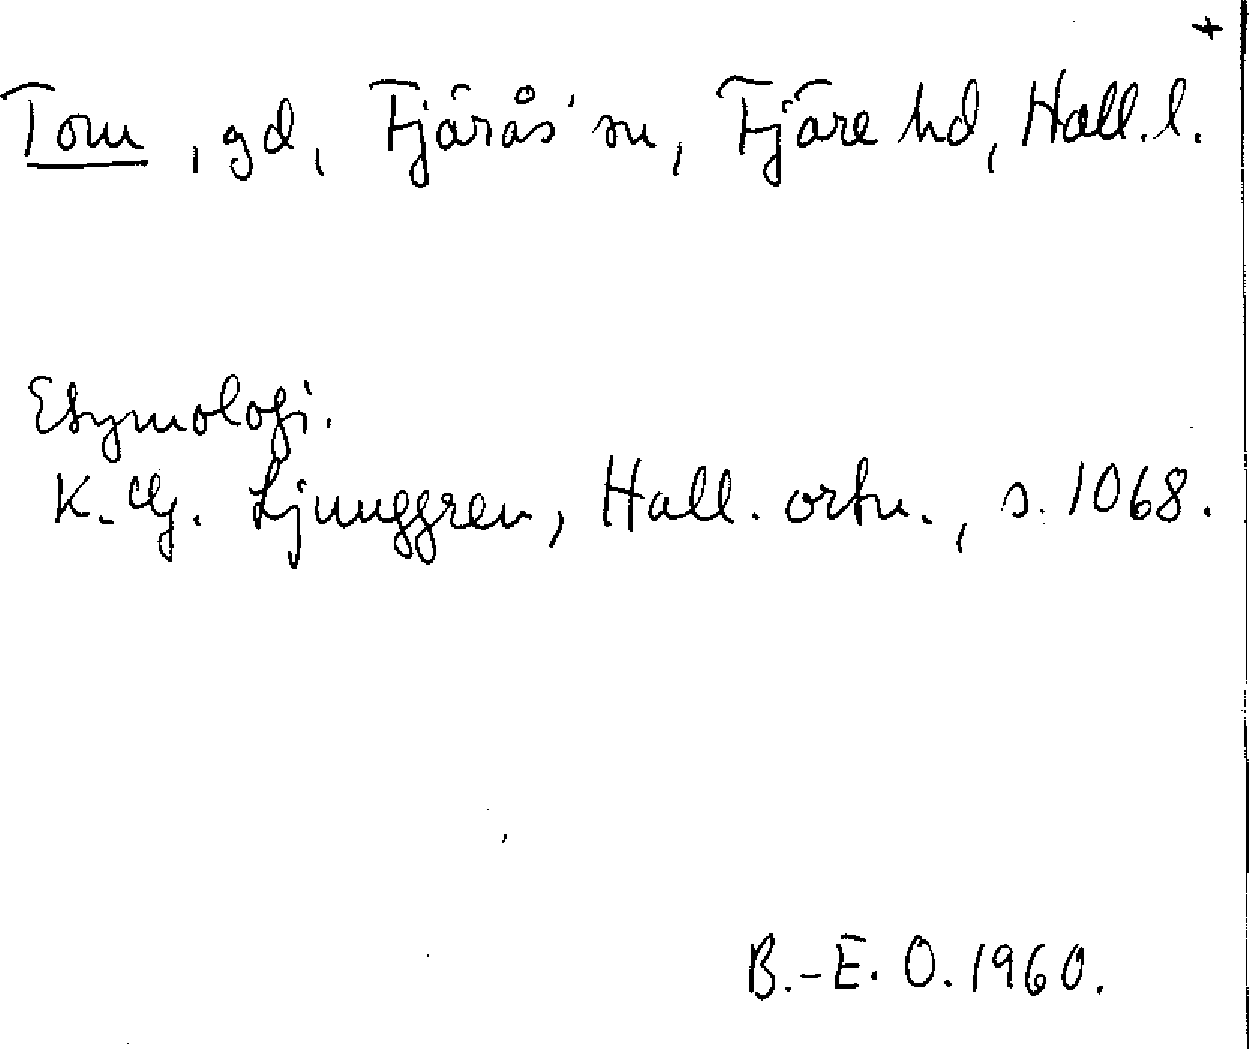 +
Tom, gd, Fjärås' sn, Fjäre hd, Hall. l.
Etymologi.
K.-Hj. Ljunggren, Hall. ortn., s. 1068.
B.-E. O. 1960.